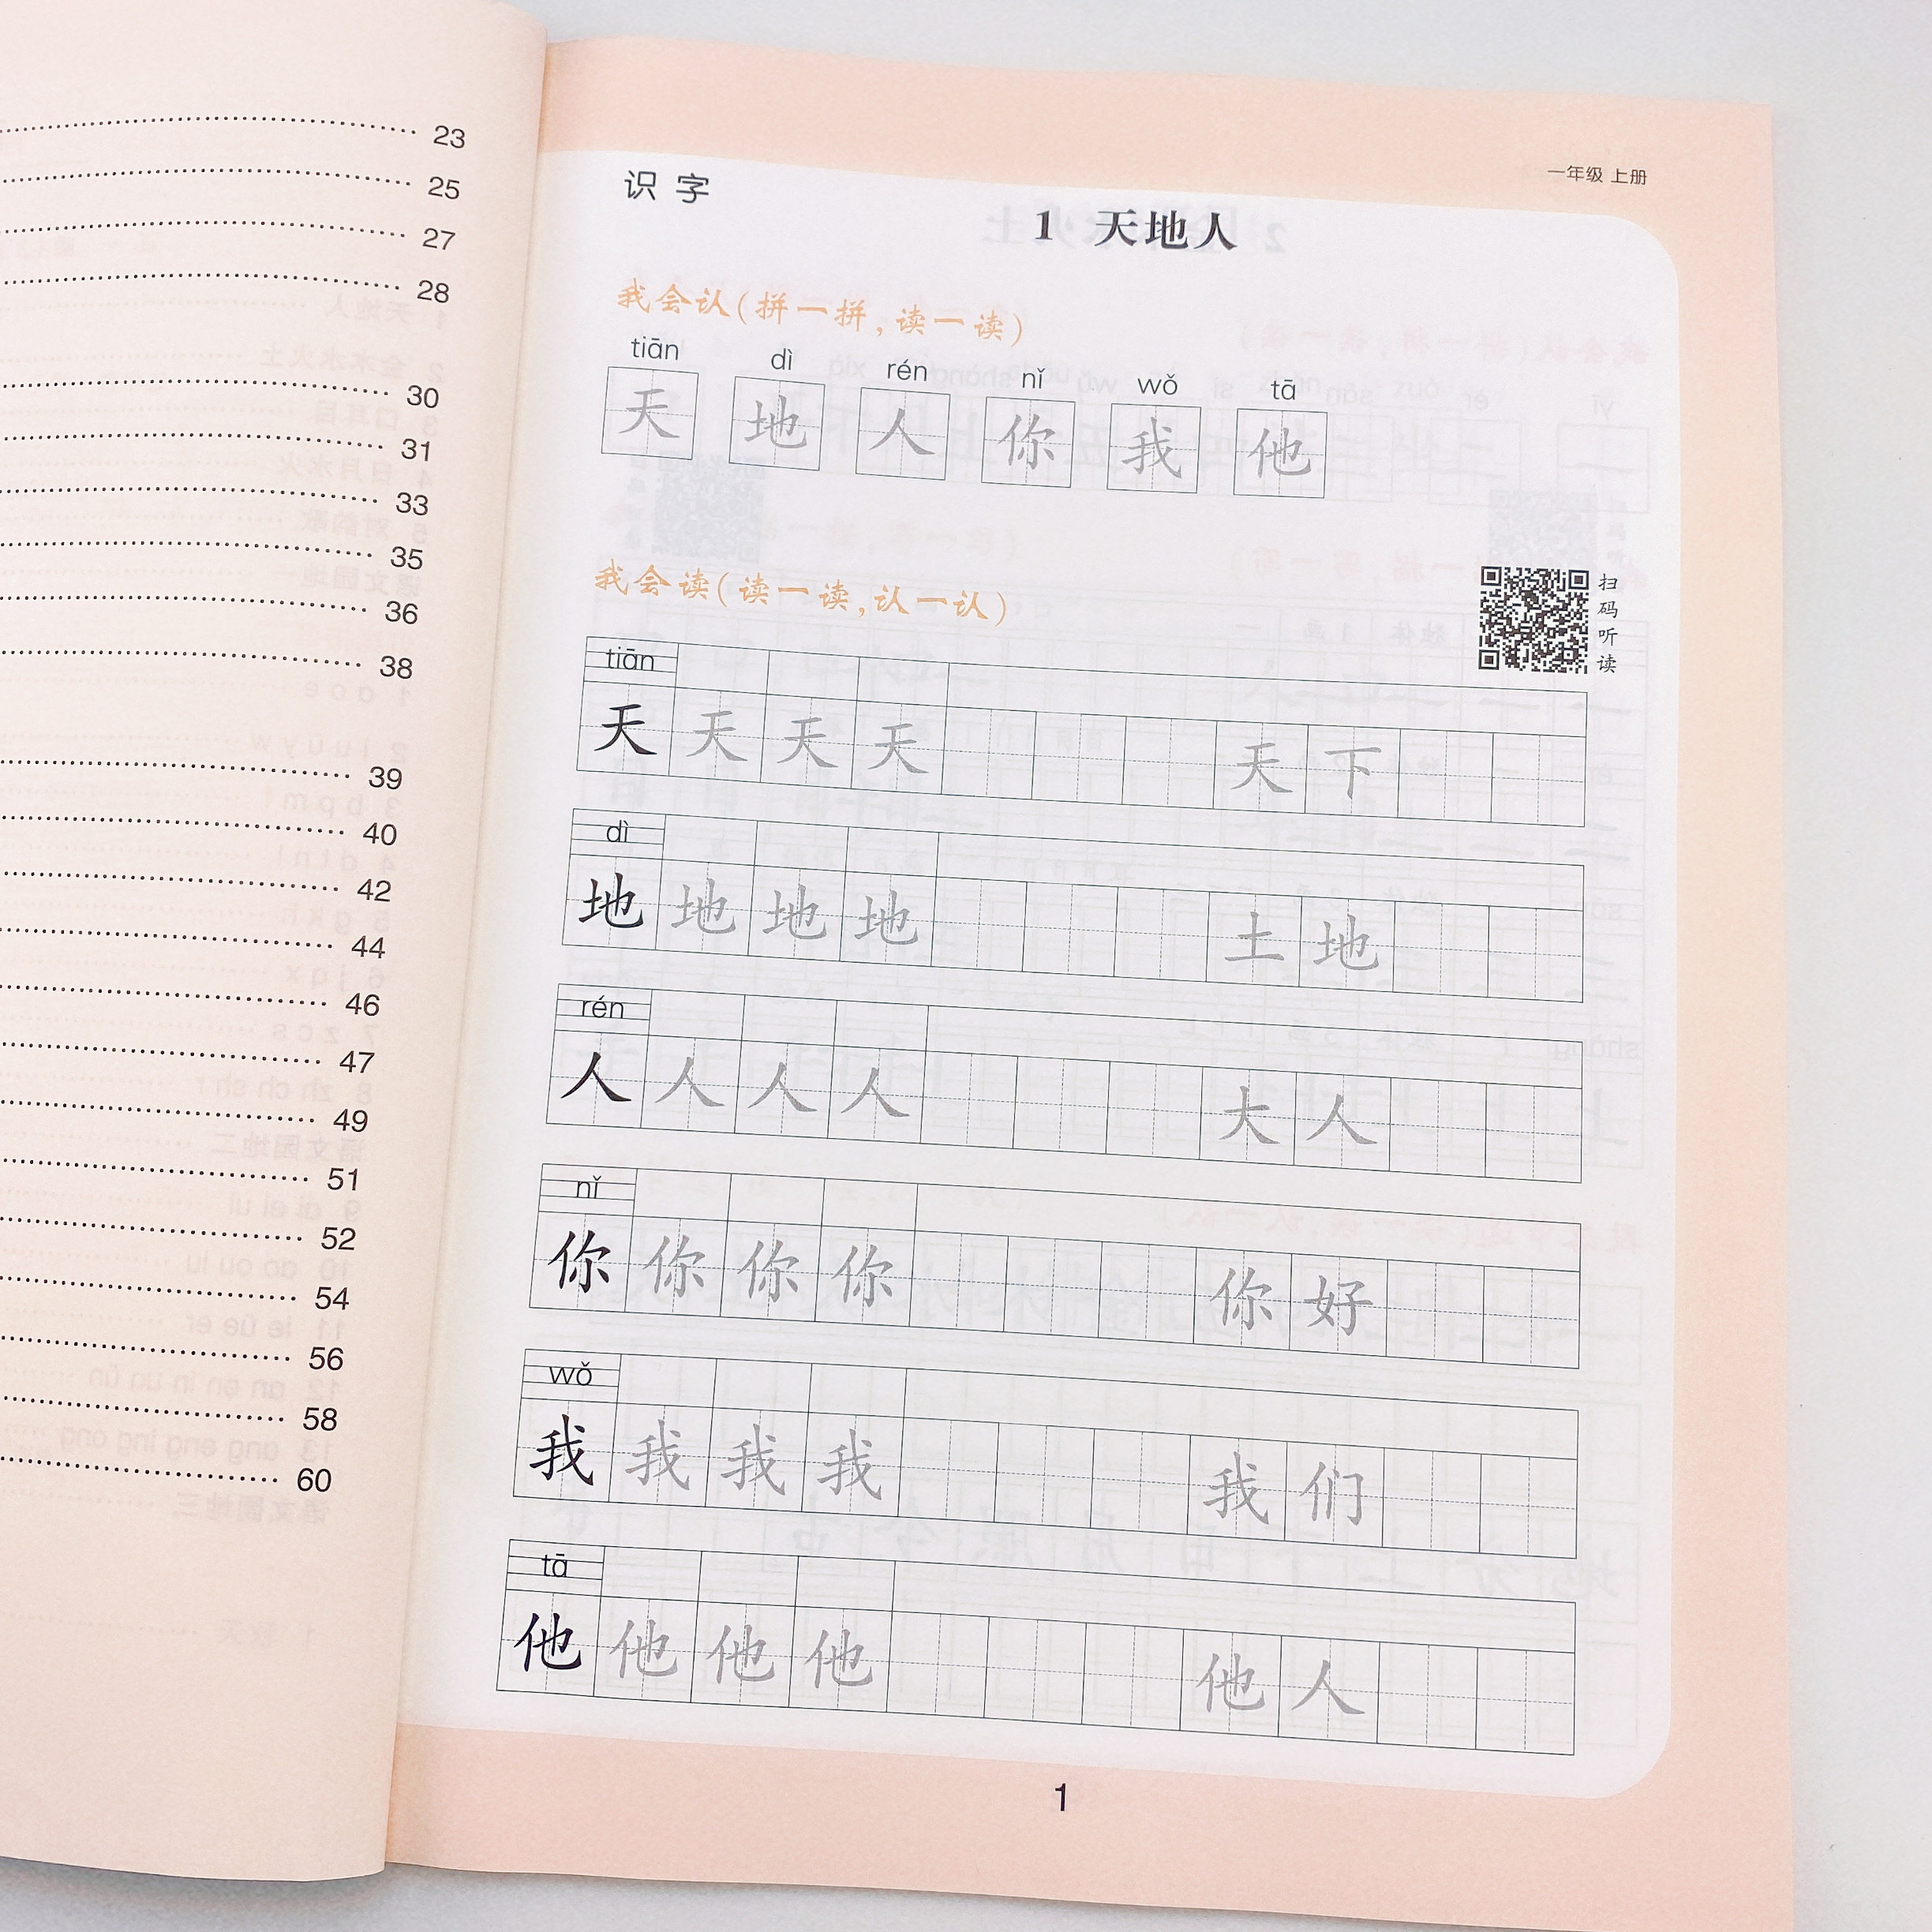 23
25
27
28
30
31
33
35
36
38
39
40
42
44
46
47
49
51
52
54
56
58
60
一年级 上册
识 字
1 天地人
我会认(拼一拼,读一读)
tiān dì rén nǐ wǒ tā
天 地 人 你 我 他
我会读(读一读,认一认)
扫码听读
tiān
天 天 天 天 天 下
dì
地 地 地 地 土 地
rén
人 人 人 人 大 人
nǐ
你 你 你 你 你 好
wǒ
我 我 我 我 我 们
tā
他 他 他 他 他 人
1